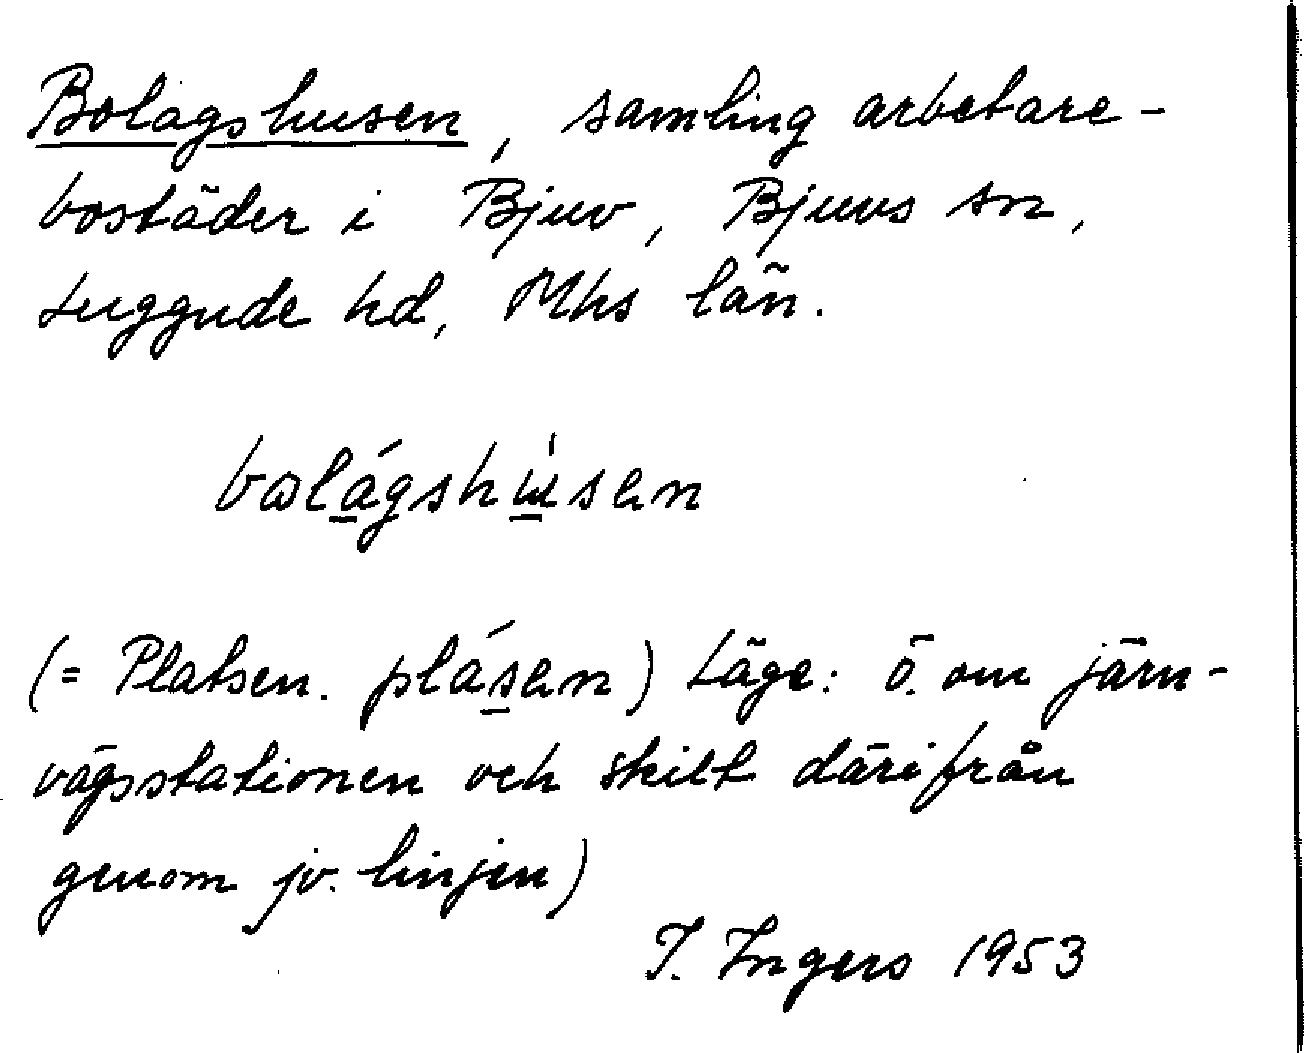 Bolagshusen, samling arbetare-
bostäder i Bjuv, Bjuvs sn,
Luggude hd, Mhs län.
bolágshúsen
(= Platsen. plásen) Läge: ö. om järn-
vägsstationen och skilt därifrån
genom jv. linjen)
I. Ingers 1953